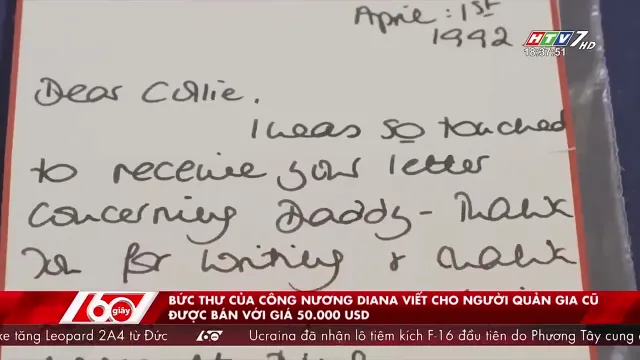 April : 1st
1992
HTV7 HD
18:37:51
Dear Collie.
I was so touched
to receive your letter
concerning Daddy - Thank
you for writing & thank
60 giây
BỨC THƯ CỦA CÔNG NƯƠNG DIANA VIẾT CHO NGƯỜI QUẢN GIA CŨ
ĐƯỢC BÁN VỚI GIÁ 50.000 USD
xe tăng Leopard 2A4 từ Đức
Ucraina đã nhận lô tiêm kích F-16 đầu tiên do Phương Tây cung